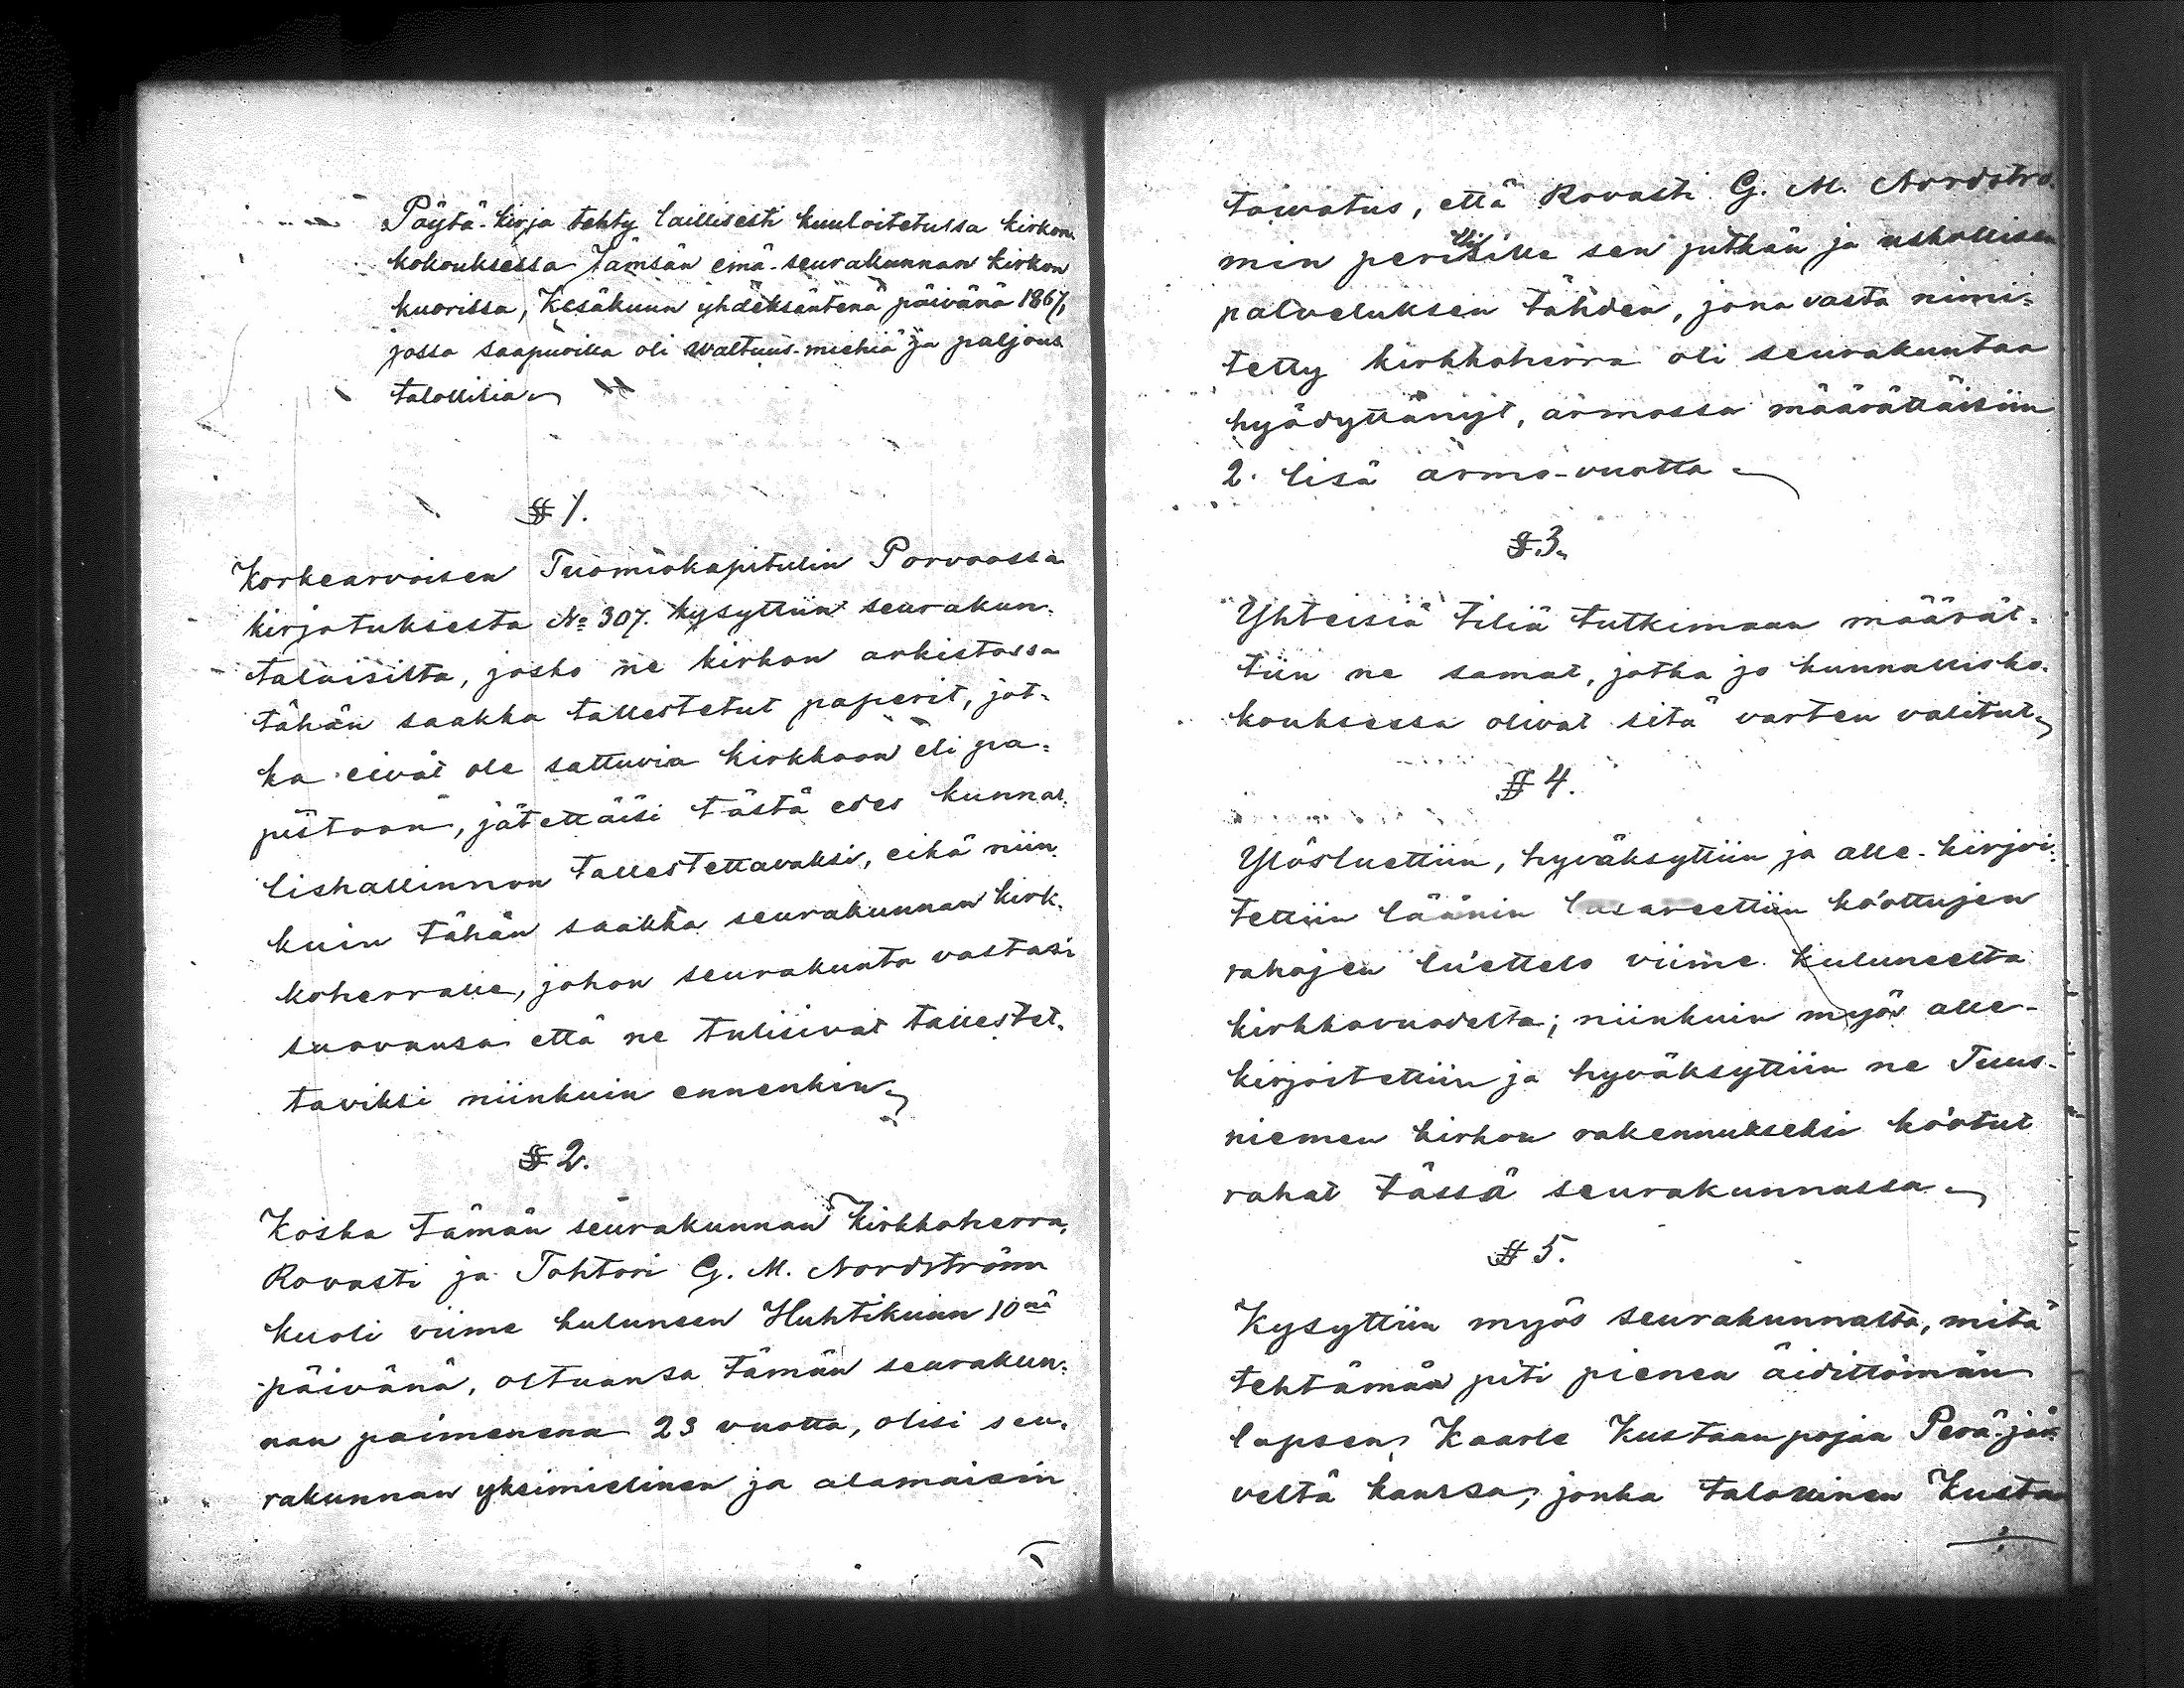 Pöytä-kirja tehty laillisesti kuuloitetussa kirkon
kokouksessa Jämsän emä-seurakunnan kirkon
kuorissa, Kesäkuun yhdeksäntenä päivänä 1867,
jossa saapuvilla oli waltuus-miehiä ja paljous
talollisia
§ 1.
Korkearvoisen Tuomiokapitulin Porvoossa
kirjotuksesta No 307. kysyttiin seurakun-
talaisilta, josko ne kirkon arkistossa
tähän saakka tallestetut paperit, jot-
ka eivät ole sattuvia kirkkoon eli pa-
pistoon, jätettäisi tästä edes kunnal-
lishallinnon tallestettavaksi, eikä niin-
kuin tähän saakka seurakunnan kirk-
koherralle, johon seurakunta vastasi
suovansa että ne tulisivat tallestet-
taviksi niinkuin ennenkin
§ 2.
Koska tämän seurakunnan Kirkkoherra,
Rovasti ja Tohtori G. M. Nordström
kuoli viime kuluneen Huhtikuun 10nä
päivänä, oltuansa tämän seurakun-
nan paimenena 23 vuotta, olisi seu-
rakunnan yksimielinen ja alamaisin
toivotus, että Rovasti G. M. Nordströ-
min perillisille sen pitkän ja uskollisen
palveluksen tähden, jona vasta nimi-
tetty kirkkoherra oli seurakuntaa
hyödyttänyt, armossa määrättäisiin
2. lisä armo-vuotta
§ 3.
Yhteisiä tiliä tutkimaan määrät-
tiin ne samat, jotka jo kunnallisko-
kouksessa olivat sitä varten valitut
§ 4.
Ylösluettiin, hyväksyttiin ja alle-kirjoi-
tettiin läänin lasareettiin koottujen
rahojen luettelo viime kuluneelta
kirkkovuodelta; niinkuin myös alle-
kirjoitettiin ja hyväksyttiin ne Tuus-
niemen kirkon rakennukseksi kootut
rahat tässä seurakunnassa
§ 5.
Kysyttiin myös seurakunnalta, mitä
tehtämän piti pienen äidittömän
lapsen Kaarle Kustaanpojan Perä-jär-
veltä kanssa, jonka talollinen Kusta